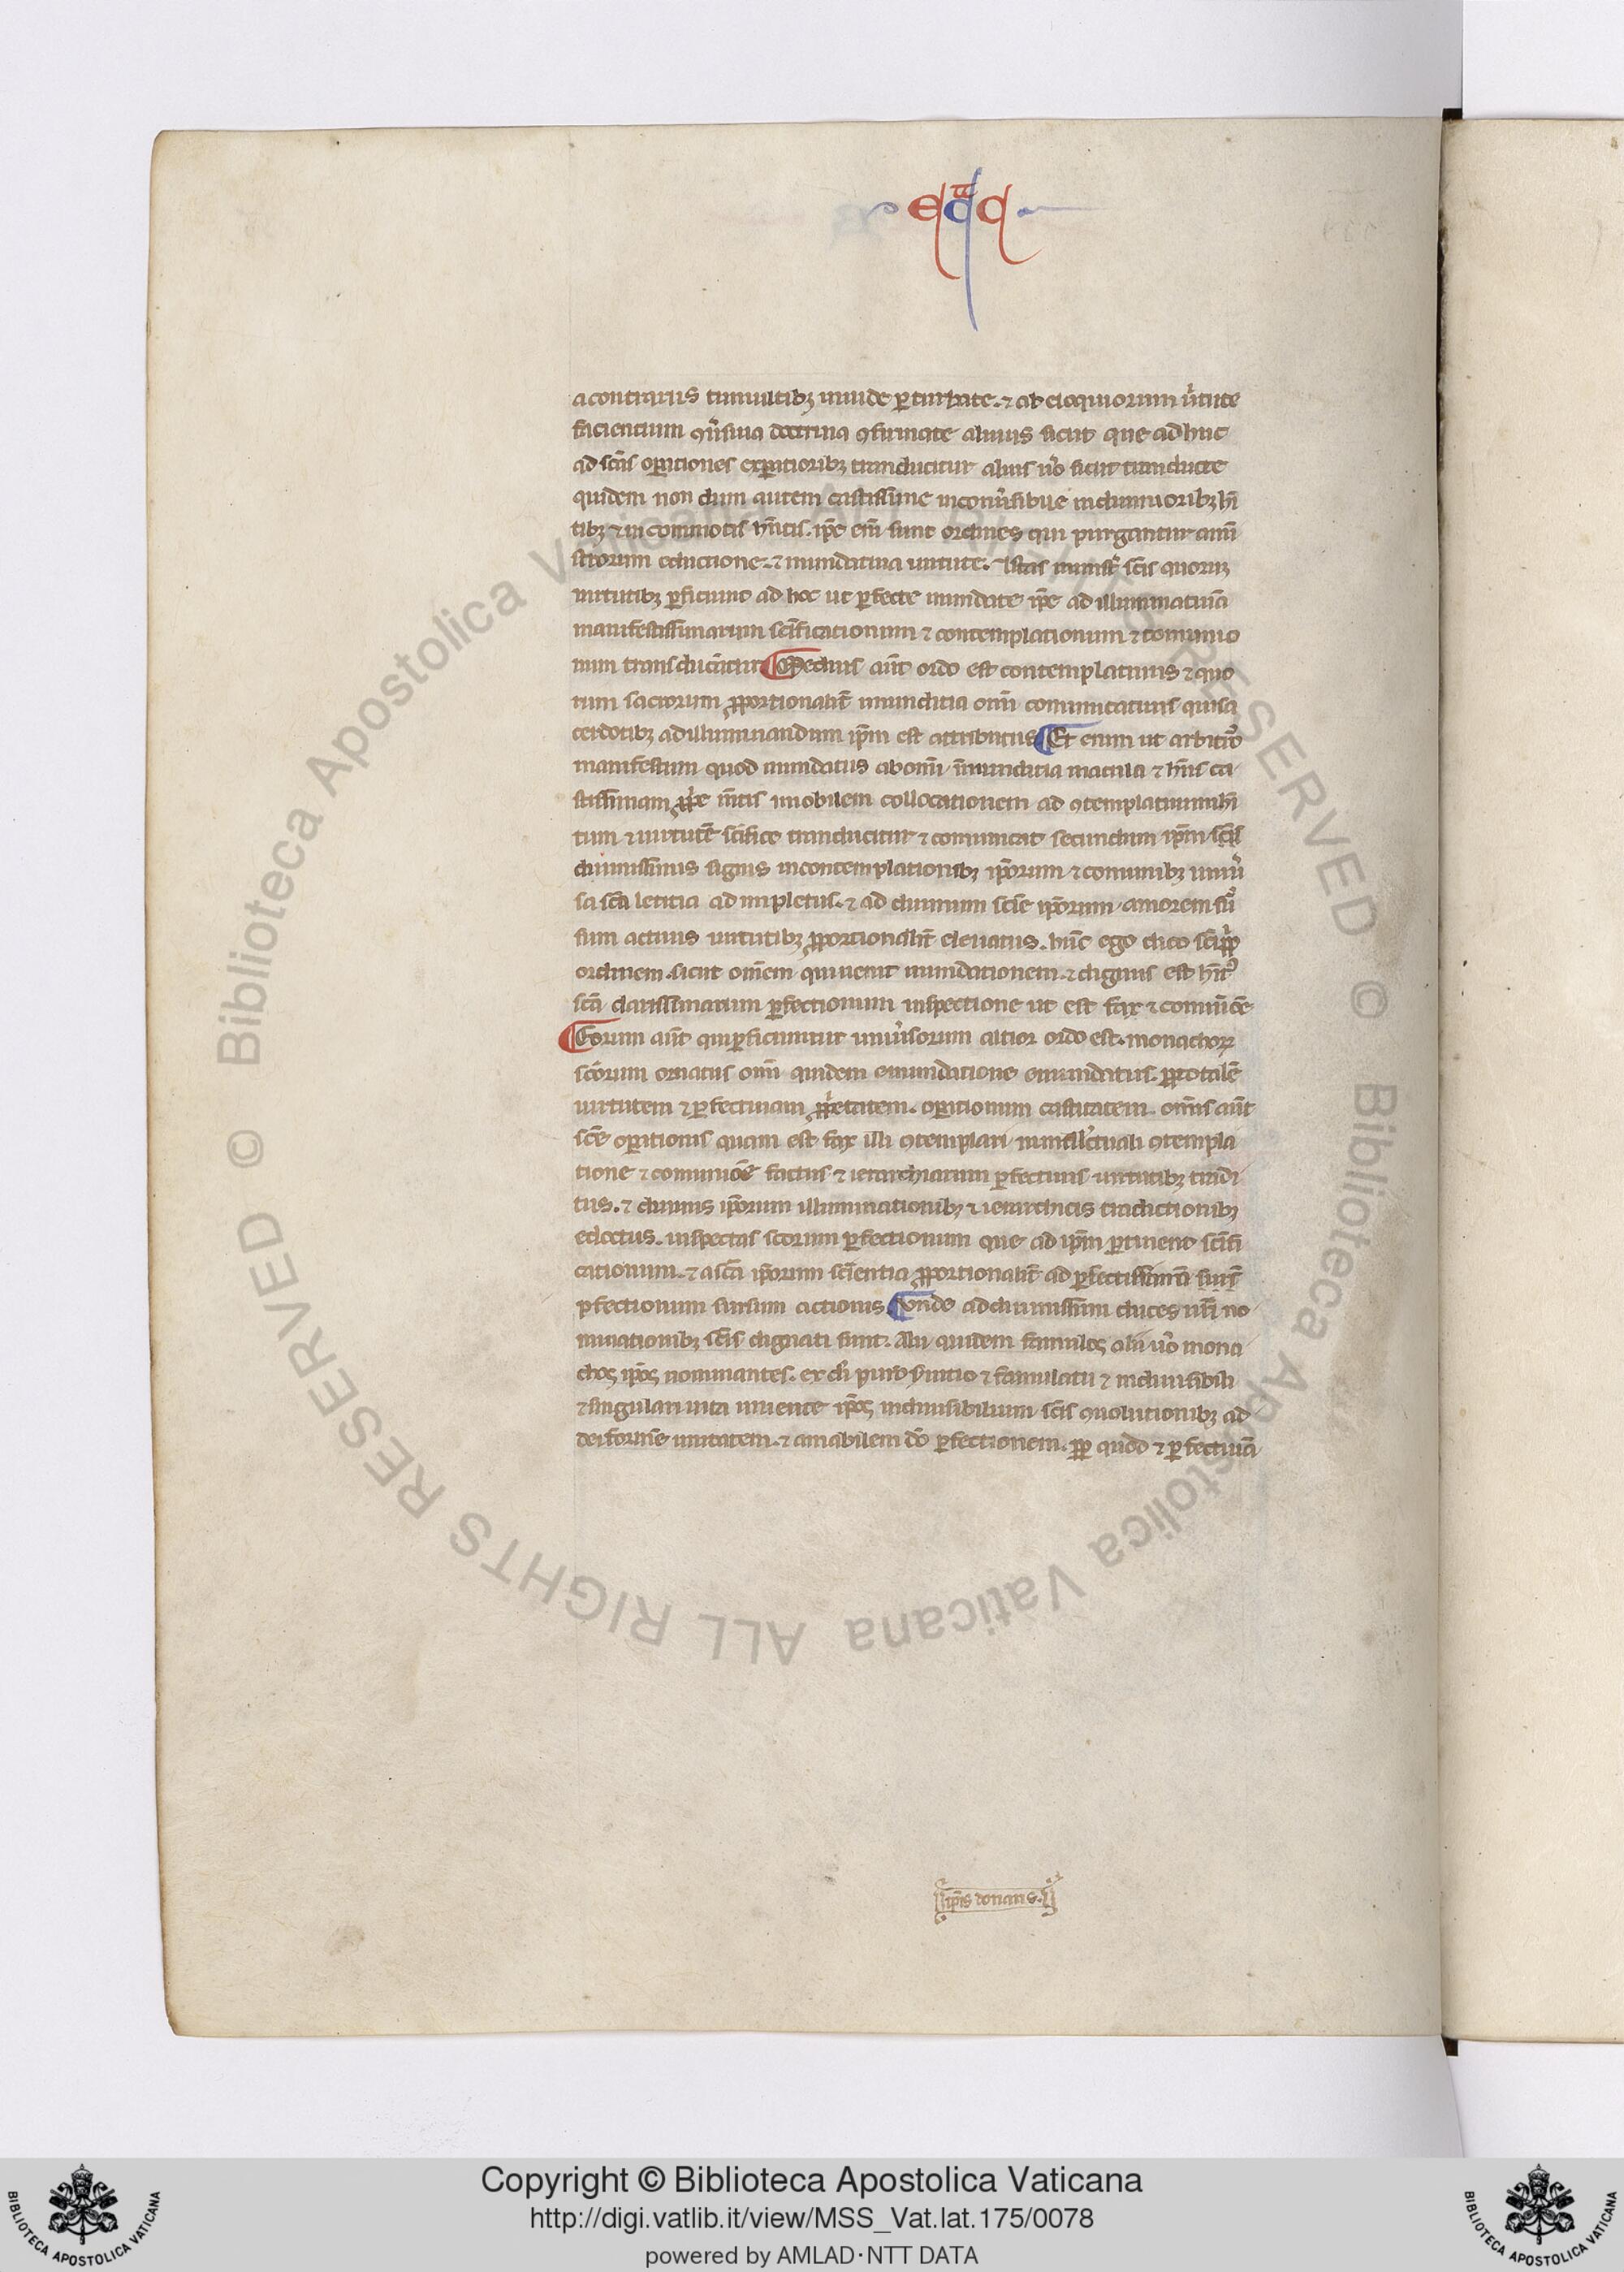 a contrariis tumultibꝫ nimide ꝑturbate. ⁊ ab eloquiorum ũtute
facientium ꝯũsiua doctrina ꝯfirmate aliuis sicut que adhuc
ad sc̃as oꝑationes exꝑatioribꝫ transducitur aliuis ũo sicut transducte
quidem non dum autem castissime inconũsibue in diuinioribꝫ hñ
tibꝫ ⁊ in commotis hñtis. ip̃e em̃ sunt ordines qui purgantur am̃
strorum eductione. ⁊ mundatiua uirtute. Istas ministr̃ sc̃is quorum
uirtutibꝫ ꝑficiunt ad hoc ut ꝑfecte mundate ip̃e ad illuminatiuã
manifestissimarum sc̃ificationum ⁊ contemplationum ⁊ comunio
num transducãtur Medius aũt ordo est contemplatiuus ⁊ quo
rum sacrorum ꝓportionalit̃ in munditia om̃i comunicatiuus qui sa
cerdotibꝫ ad illuminandum ip̃m est attributus Et enim ut arbitror
manifestum quod mundatus ab om̃i ĩmunditia macula ⁊ hñs ca
stissimam mẽtis imobilem collocationem ad ꝯtemplatiuum hĩ
tum ⁊ uirtutẽ sc̃ifice transducitur ⁊ comunicat secundum ip̃m sc̃is
diuinissimis signis in contemplationibꝫ ip̃orum ⁊ comunibꝫ uniũ
sa sc̃a letitia ad impletus. ⁊ ad diuinum scĩe ip̃orum amorem sũ
sum actiuis uirtutibꝫ ꝓportionalit̃ eleuatus. hũc ego dico
ordinem. sicut omẽm qui uenit mundationem. ⁊ dignus est
sc̃a clarissimarum ꝑfectionum inspectione ut est fax ⁊ comuniõe
Eorum aũt qui ꝑficiuntur uniũsorum altior ordo est. monachoꝝ
sc̃orum ornatus om̃i quidem emundatione emundatus. ꝑ totalẽ
uirtutem ⁊ ꝑfectiuam oꝑationum castitatem. om̃is aũt
sc̃e oꝑationis quam est fax illi ꝯtemplari in intellc̃tuali ꝯtempla
tione ⁊ comuniõe factus ⁊ ierarchiarum ꝑfectiuis uirtutibꝫ tradi
tus. ⁊ diuinis ip̃orum illuminationibꝫ ⁊ ierarchicis traditionibꝫ
edoctus. inspectas sc̃orum ꝑfectionum que ad ip̃m ꝑtinent sc̃ifi
cationum. ⁊ a sc̃a ip̃orum scĩentia ꝓportionalit̃ ad ꝑfectissimã
ꝑfectionum sursum actionis Vnde ad diuinissimi duces nr̃i no
minationibꝫ sc̃is dignati sunt. Alii quidem famulos alii ũo mona
chos ip̃os nominantes. ex di puro ſuitio ⁊ famulatu ⁊ indiuisibili
⁊ singulari uita uniente ip̃os indiuisibilium sc̃is ꝯuolutionibꝫ ad
deiformẽ unitatem. ⁊ amabilem dõ ꝑfectionem. quod ⁊ ꝑfectiuã
ip̃is donans.
Copyright © Biblioteca Apostolica Vaticana
http://digi.vatlib.it/view/MSS_Vat.lat.175/0078
powered by AMLAD·NTT DATA
BIBLIOTECA APOSTOLICA VATICANA
BIBLIOTECA APOSTOLICA VATICANA
© Biblioteca Apostolica Vaticana ALL RIGHTS RESERVED
© Biblioteca Apostolica Vaticana ALL RIGHTS RESERVED